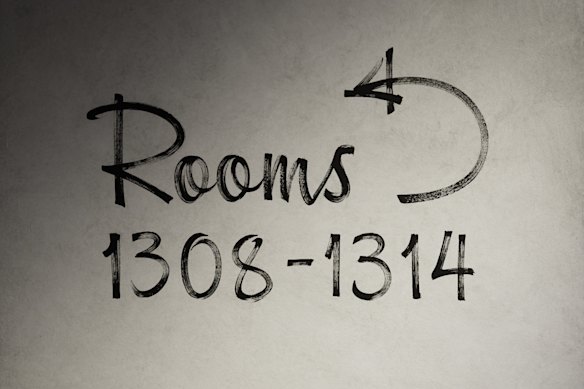 Rooms
1308-1314